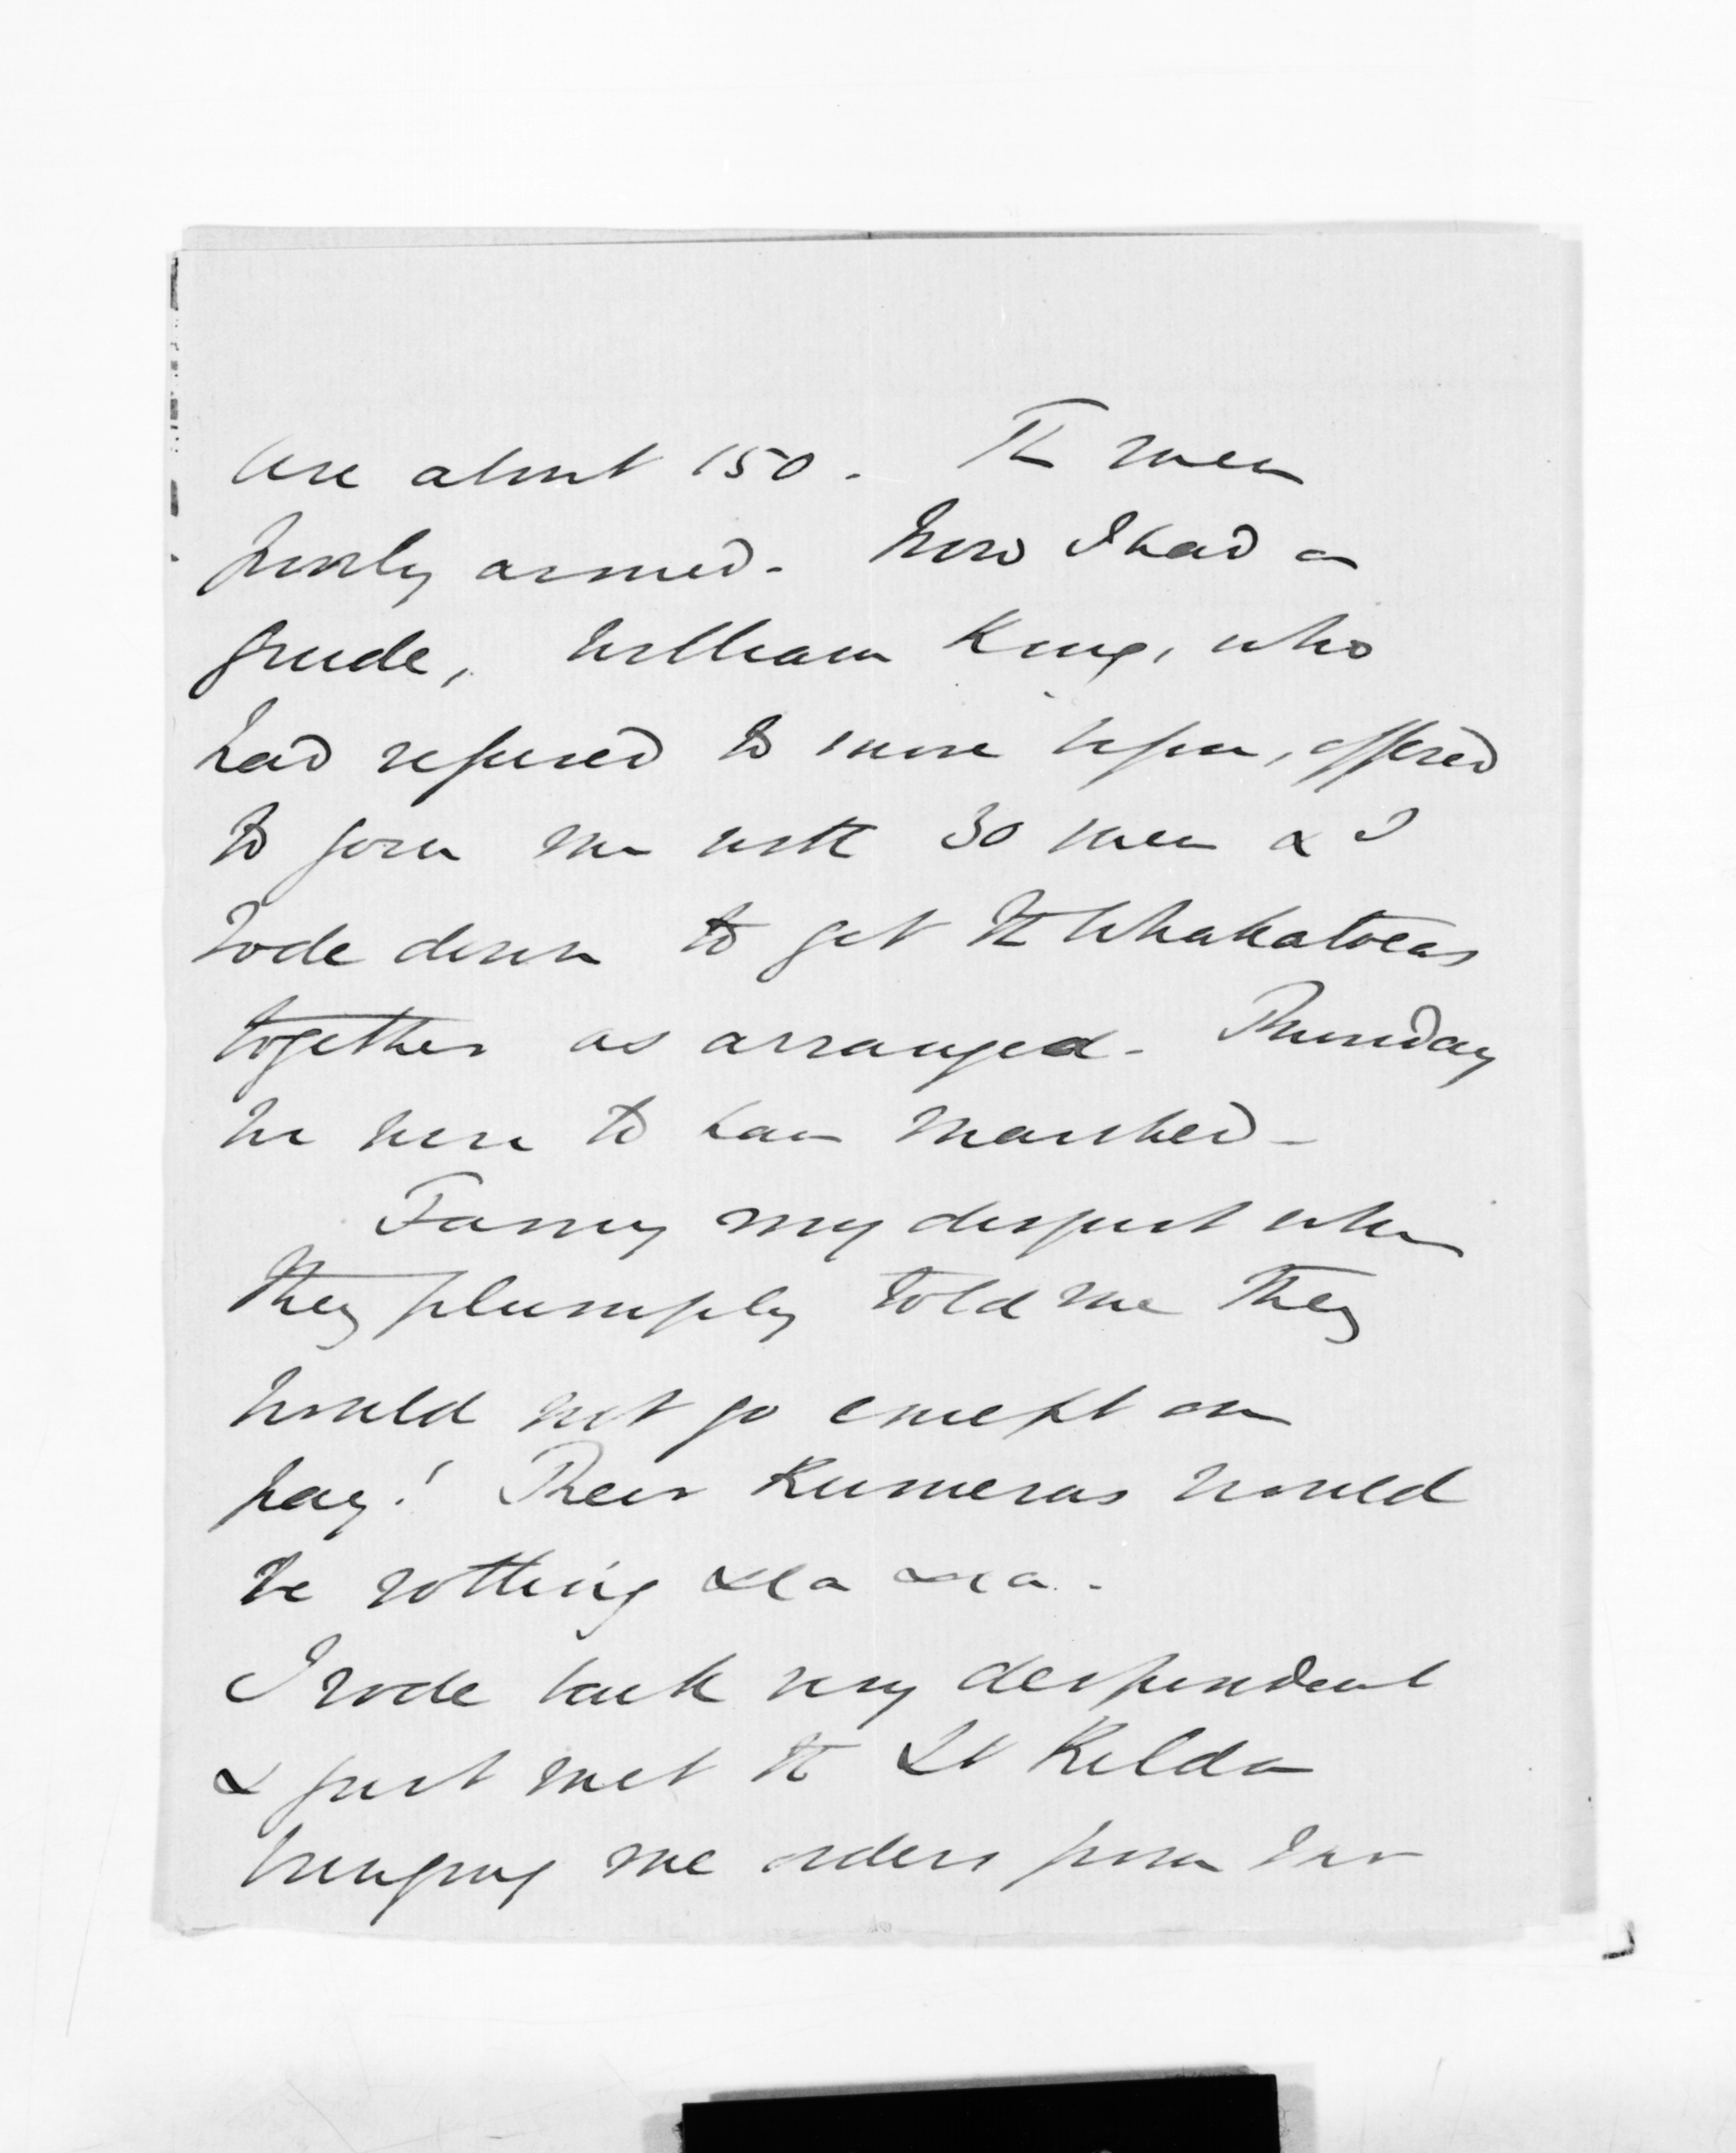 are about 150. The men
poorly armed. Now I had a
guide, William King, who
had refused to move before, offered
to join me with 30 men & I
rode down to get the Whakatoeas
together as arranged. Thursday
we were to have marched.
Fancy my disgust when
they plumply told me they
would not go except on
pay! Their Kumeras would
be rotting &ca &ca.
I rode back very despondent
& just met the St Kilda
bringing me orders from